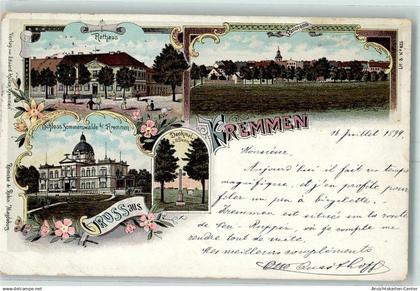 Rathaus
Panorama
Schloss Sommerswalde b/ Kremmen
Denkmal
GRUSS aus
KREMMEN
14 Juillet 1899.
Monsieur.
Aujourd'hui il fait un temps
magnifique, et j'en profite pour
fêter un peu à bicyclette.
Kremmen est situé sur la route
de Neu-Ruppin, où je compte me
rendre tout de suite.
Mes meilleurs compliments
Otto
Ansichtskarten-Center